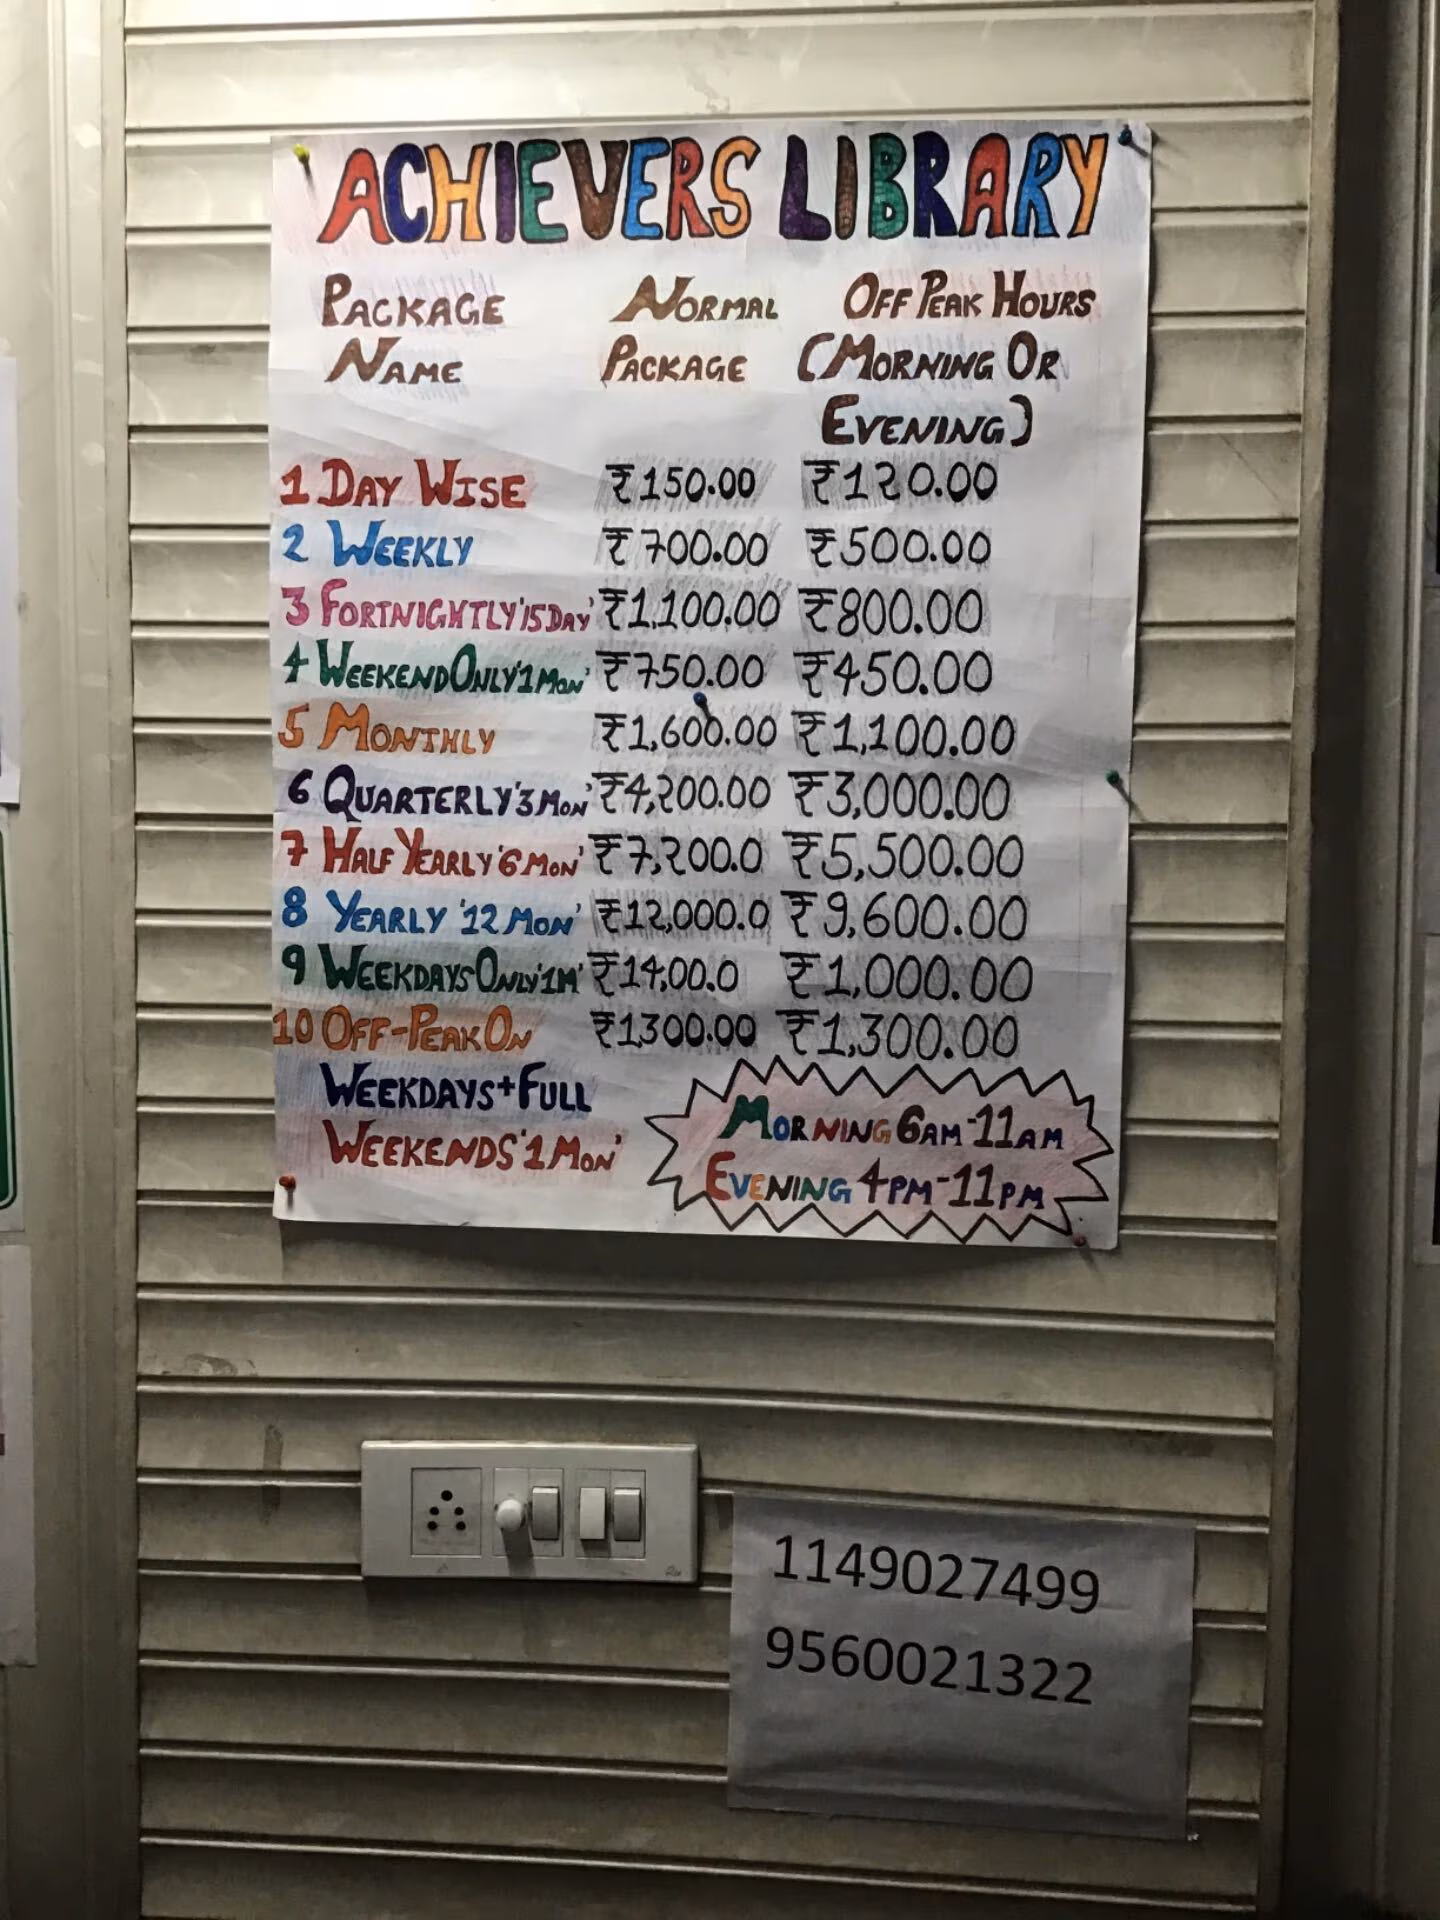 ACHIEVERS LIBRARY
PACKAGE NORMAL OFF PEAK HOURS
NAME PACKAGE (MORNING OR
EVENING)
1 DAY WISE ₹150.00 ₹120.00
2 WEEKLY ₹700.00 ₹500.00
3 FORTNIGHTLY'15DAY' ₹1,100.00 ₹800.00
4 WEEKENDONLY'1MON' ₹750.00 ₹450.00
5 MONTHLY ₹1,600.00 ₹1,100.00
6 QUARTERLY'3MON' ₹4,200.00 ₹3,000.00
7 HALF YEARLY'6MON' ₹7,200.0 ₹5,500.00
8 YEARLY '12MON' ₹12,000.0 ₹9,600.00
9 WEEKDAYSONLY'1M' ₹14,00.0 ₹1,000.00
10 OFF-PEAK ON ₹1300.00 ₹1,300.00
WEEKDAYS+FULL
WEEKENDS'1MON'
MORNING 6AM-11AM
EVENING 4PM-11PM
1149027499
9560021322